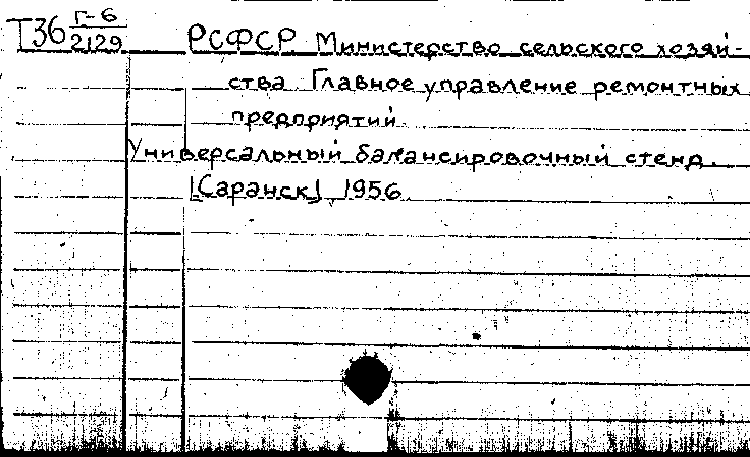 Т36 Г-6/2129 РСФСР Министерство сельского хозяй-
ства Главное управление ремонтных
предприятий.
Универсальный балансировочный стенд.
[Саранск] 1956.